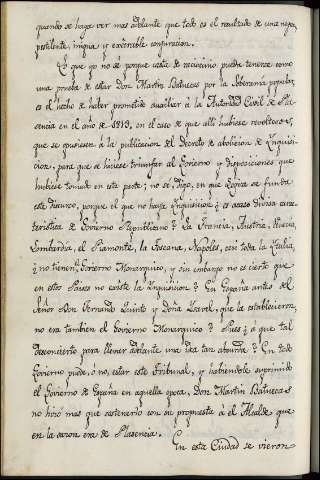 quando se haga ver mas adelante que todo es el resultado de una negra,
pestilente, impia, y execrible conjuracion.
Lo que yo no sé porque casta de raciocinio pueda tenerse como
una prueba de estar Don Martin Bañuecas por la Soberania popular,
es el hecho de haber prometido auxiliar à la Autoridad Civil de Pla-
sencia en el año de 1813, en el caso de que alli hubiese revoltosos,
que se opusiesen á la publicacion del Decreto de abolicion de Ynquisi-
cion, para que se hiciese triunfar al Govierno y disposiciones que
hubiese tomado en esta parte; no sé, digo, en que Logica se funda
este discurso, porque el que no haya Ynquisicion ¿es acaso divisa carac-
teristica de Govierno Republicano? La Francia, Austria, Rusia,
Lombardia, el Piamonte, la Toscana, Napoles, casi toda la Ytalia
¿no tienen Govierno Monarquico, y sin embargo no es cierto que
en estos Paises no existe la Ynquisicion? En España antes del
Señor Don Fernando Quinto y Doña Ysavel, que la establecieron,
no era tambien el Govierno Monarquico? Pues ¿á que tal
desconcierto para llevar adelante una idea tan absurda? En todo
Govierno puede, ó no, estar este Tribunal, y habiendole suprimido
el Govierno de España en aquella epoca, Don Martin Bañuecas
no hizo mas que sostenerlo con su propuesta á el Alcalde que
en la sazon era de Plasencia.
En esta Ciudad se vieron